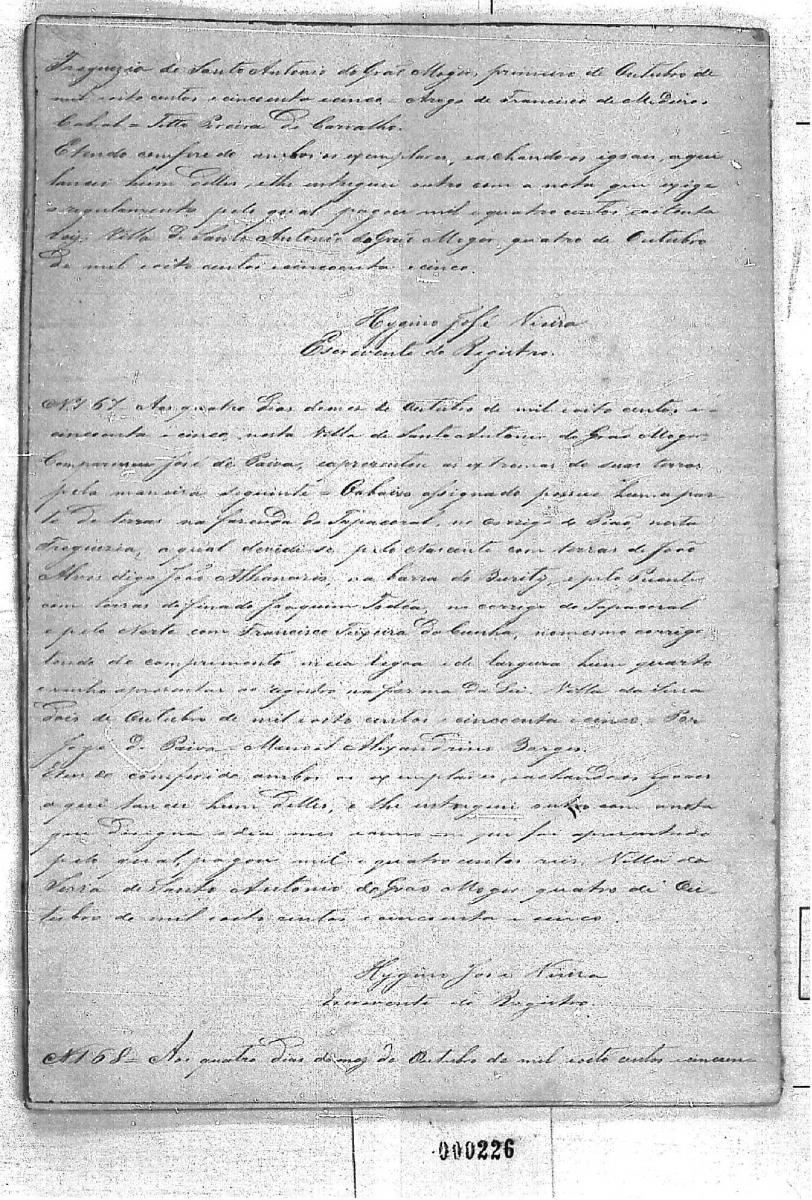 Freguezia de Santo Antonio do Grão Mogor primeiro de Outubro de
mil e oito centos e cincoenta e cinco = Arogo de Francisco de Medeiros
Cabral = Titto Pereira de Carvalho.
E tendo conferido ambos os exemplares, e achando os iguais, aqui
lancei hum delles, e lhe entreguei outro com a nota que exige
o regulamento pelo qual pagou mil e quatro centos e oitenta
reis. Villa de Santo Antonio do Grão Mogor, quatro de Outubro
de mil e oito centos e cincoenta e cinco.
Hygino José Vieira
Escrevente do Registro.
N167 Aos quatro dias do mez de Outubro de mil e oito centos e
cincoenta e cinco, nesta Villa de Santo Antonio do Grão Mogor
Compareceu José de Paiva, e apresentou as extremas de suas terras
pela maneira seguinte = O abaixo assignado possue huma par
te de terras na fazenda do Tapacoral, no corrigo do Piao, nesta
Freguezia, a qual devide se pelo Nascente com terras de João
Alves digo João Athanario, na barra do Burity, e pelo Puente
com terras do finado Joaquim, no corrigo do Tapacoral
e pelo Norte com Francisco Teixeira da Cunha, no mesmo corrigo,
tendo de comprimento meia legoa e de largura hum quarto
e venho apresentar ao registro na forma da Lei. Villa da Serra
dois de Outubro de mil e oito centos e cincoenta e cinco = Por
José de Paiva = Manoel Alexandrino Borges.
E tendo conferido ambos os exemplares, e achando os iguaes
aqui lancei hum delles, e lhe entreguei outro com a nota
que designa o dia mes e anno em que foi apresentado
pelo qual pagou mil e quatro centos reis. Villa da
Serra de Santo Antonio do Grão Mogor quatro de Ou-
tubro de mil e oito centos e cincoenta e cinco.
Hygino José Vieira
Escrevente do Registro.
N168 = Aos quatro dias do mez de Outubro de mil e oito centos e cincoen-
000226